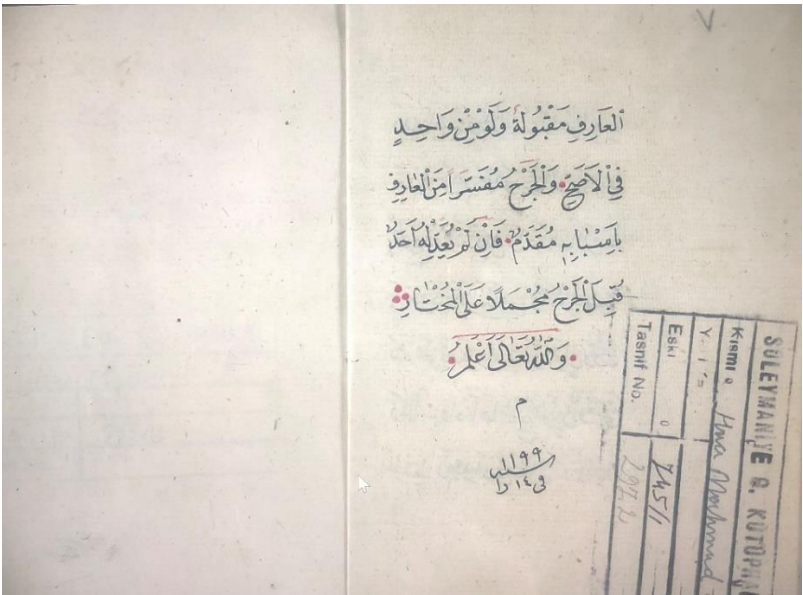 الْعَارِفِ مَقْبُولَةٌ وَلَوْ مِنْ وَاحِدٍ
فِي الْاَصَحِّ وَالْجَرْحُ مُفَسَّرًا مِنَ الْعَارِفِ
بِاَسْبَابِهِ مُقَدَّمٌ فَاِنْ لَمْ يُعَدِّلْهُ اَحَدٌ
قُبِلَ الْجَرْحُ مُجْمَلًا عَلَى الْمُخْتَارِ
وَاللّٰهُ تَعَالٰى اَعْلَمُ
م
سنة ١١٩٩
في ١٤
SÜLEYMANİYE G. KÜTÜPHA
Kısmı
Mahmud
Y.
Eski
745/1
Tasnif No.
297.2